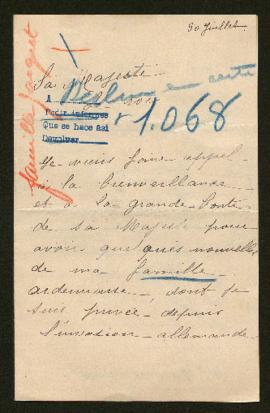 30 Juillet.
famille Jacquet
Sa Majesté
A
Pedir informes
Que se hace así
Devolver
1.068
Je viens faire appel
à la bienveillance
et à la grande bonté
de sa Majesté pour
avoir quelques nouvelles
de ma famille
ardennaise, dont je
suis privée depuis
l'invasion allemande.